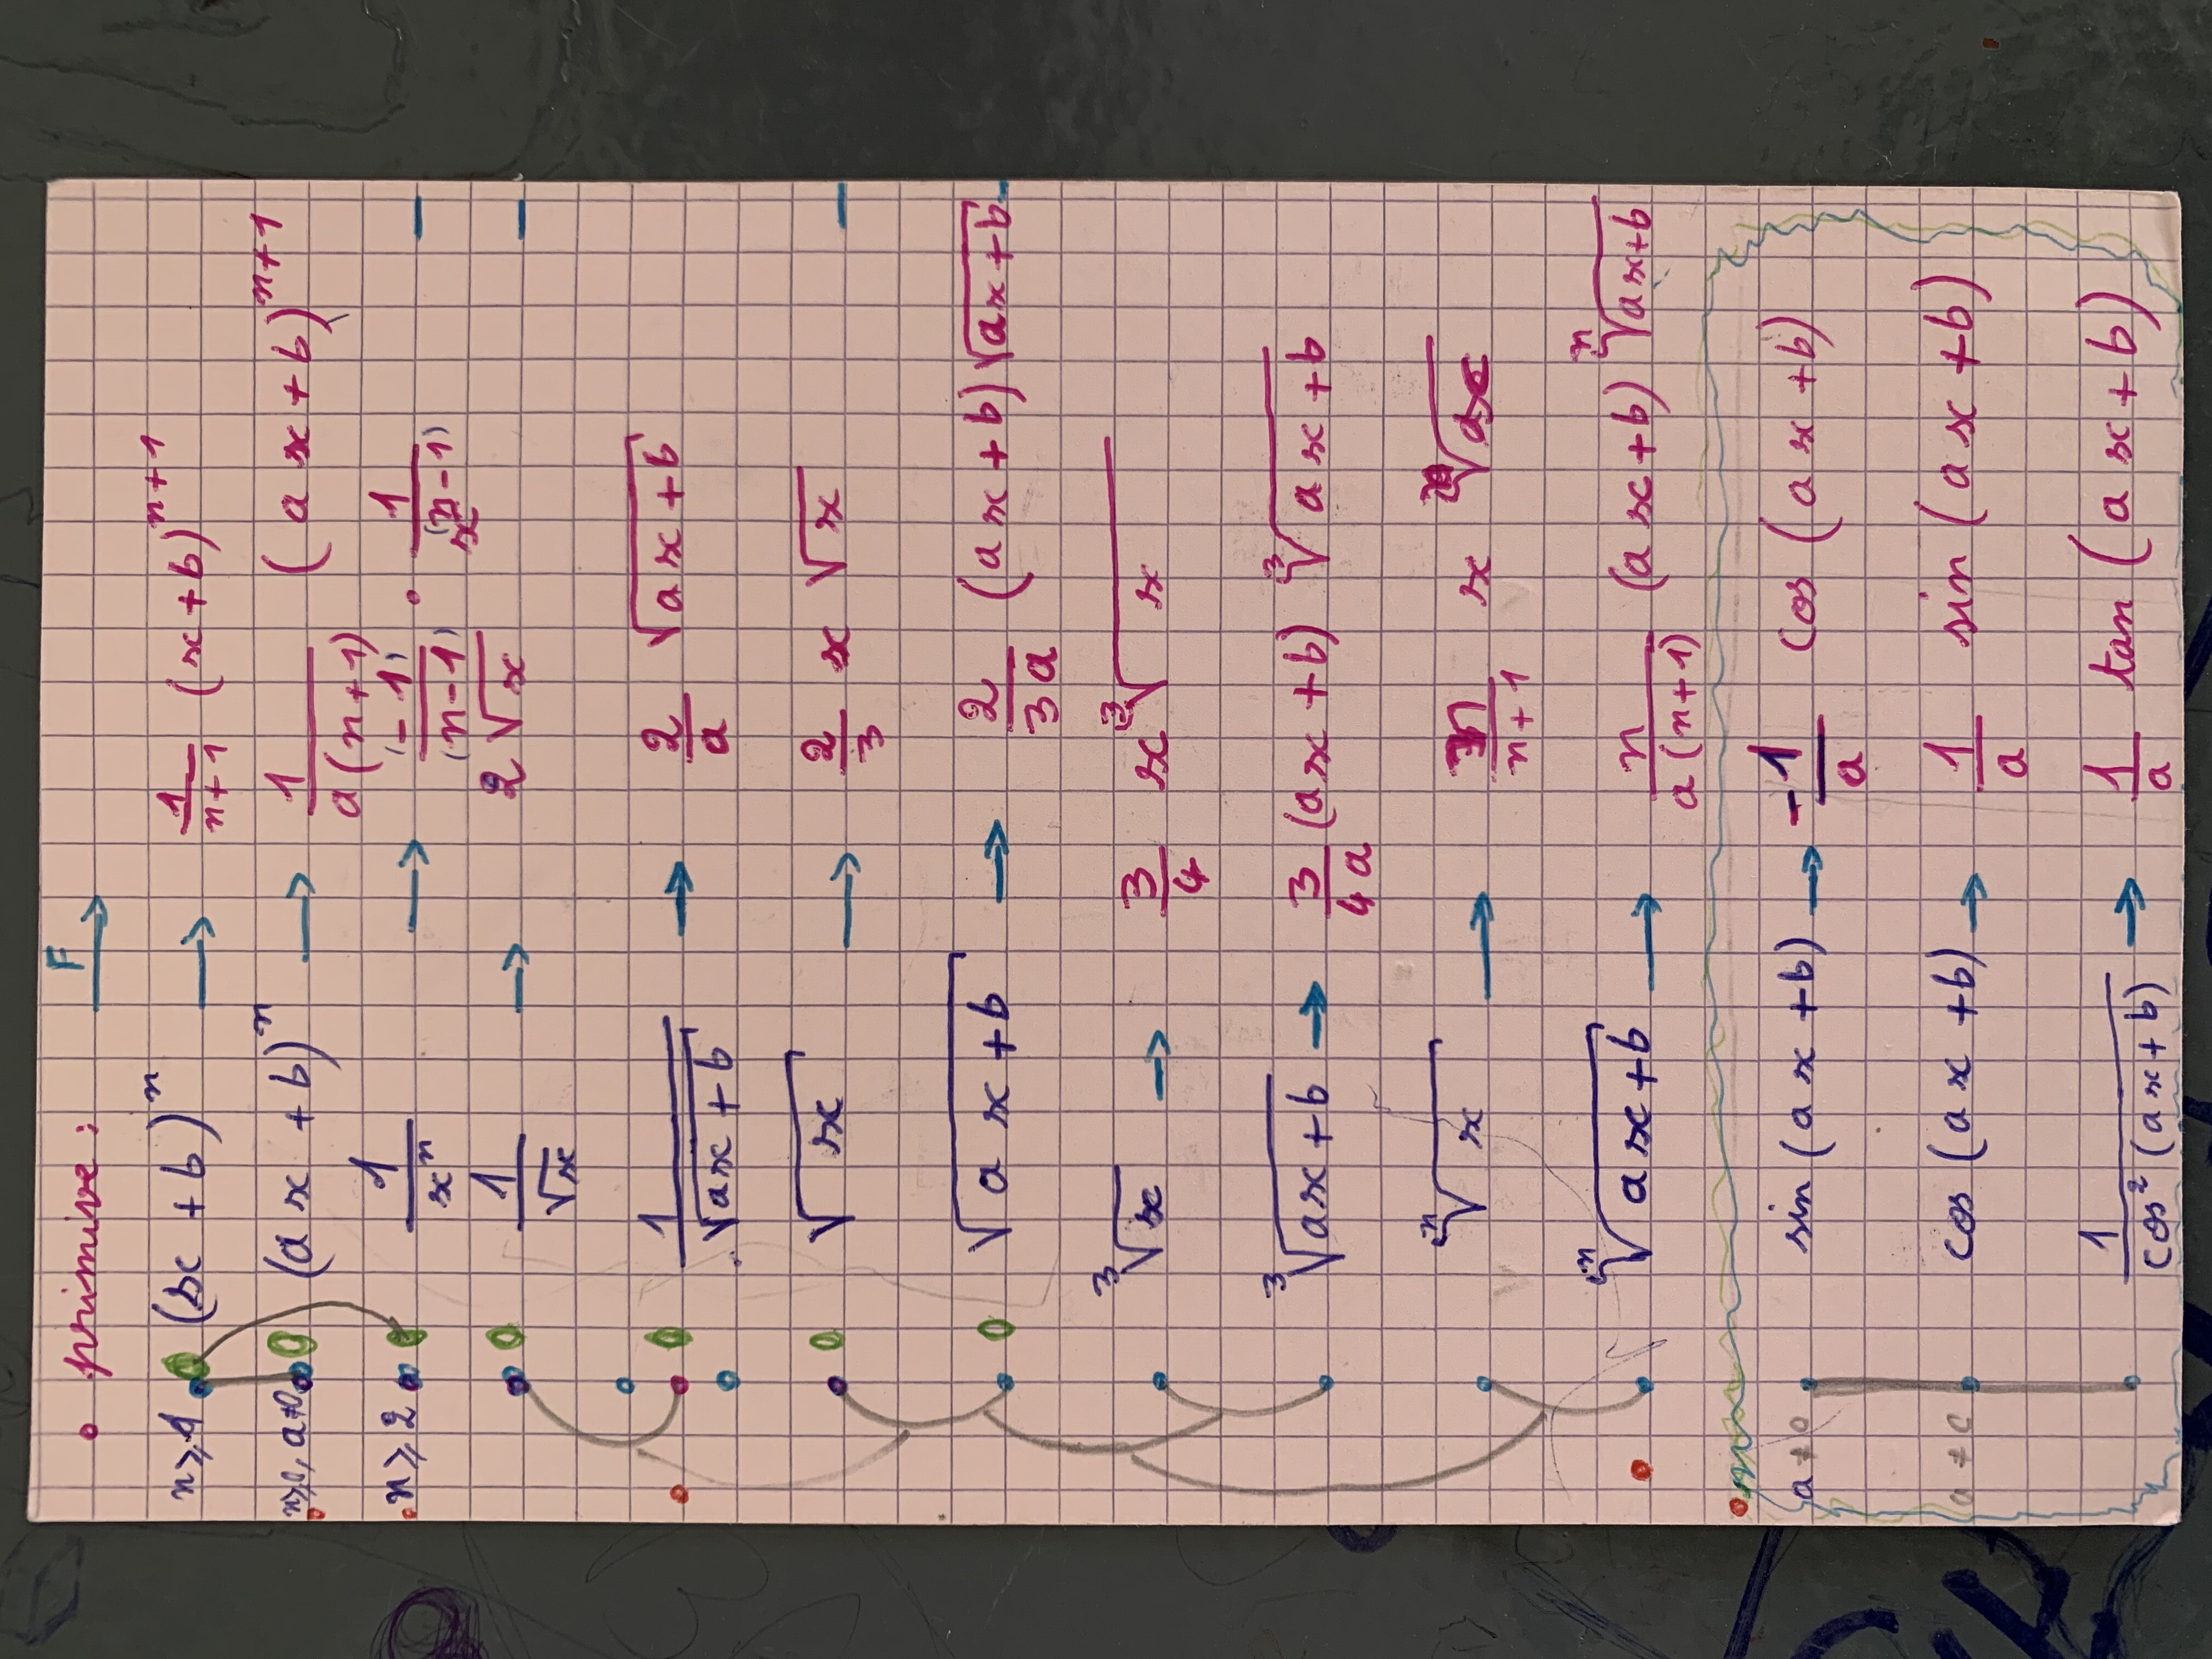 • primive : F →
n ≥ 1 (x + b)^n → 1/(n+1) (x + b)^(n+1)
n ≥ 0, a ≠ 0 (ax + b)^n → 1/(a(n+1)) (ax + b)^(n+1)
n ≥ 2 1/x^n → (-1)/(n-1) • 1/x^(n-1)
1/√x → 2√x
1/√(ax + b) → 2/a √(ax + b)
√x → 2/3 x √x
√(ax + b) → 2/(3a) (ax + b) √(ax + b)
³√x → 3/4 x ³√x
³√(ax + b) → 3/(4a) (ax + b) ³√(ax + b)
ⁿ√x → n/(n+1) x
ⁿ√(ax + b) → n/(a(n+1)) (ax + b) ⁿ√(ax + b)
a ≠ 0 sin(ax + b) → -1/a cos(ax + b)
a ≠ 0 cos(ax + b) → 1/a sin(ax + b)
1/cos²(ax + b) → 1/a tan(ax + b)